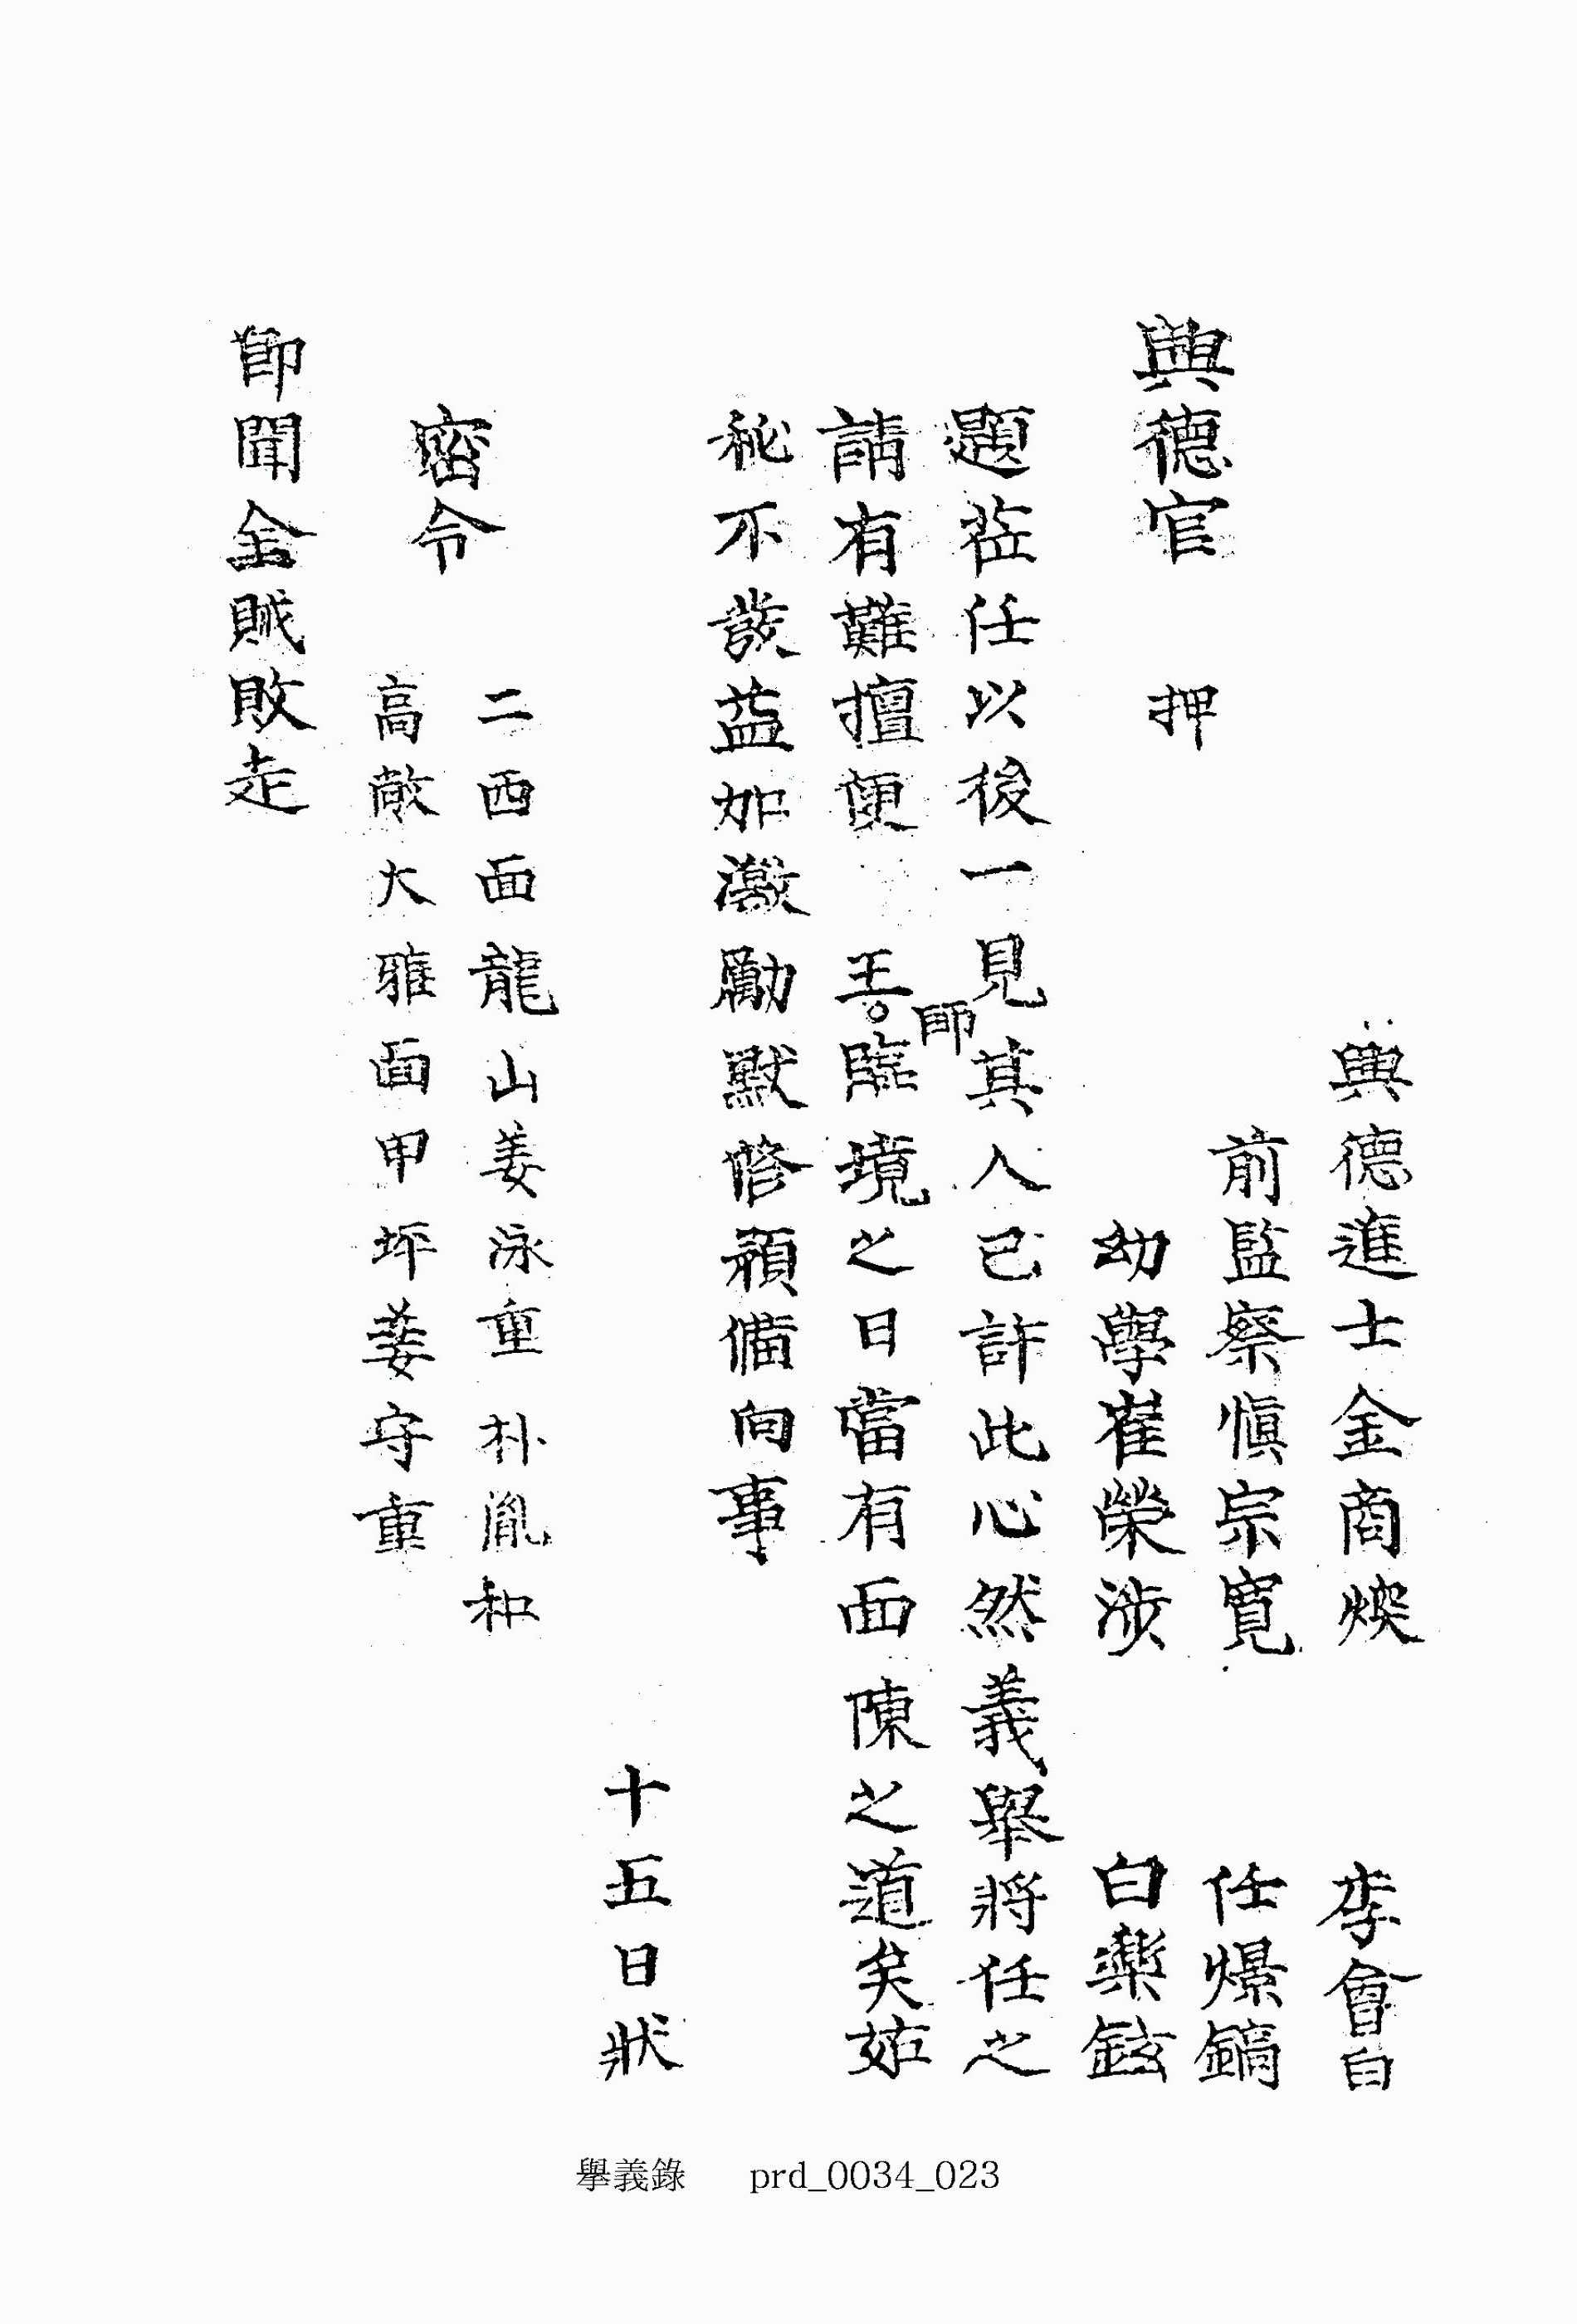 興德進士金商煥 李會白
前監察愼宗寬 任憬鎬
幼學崔榮涉 白樂鉉
興德官 押
題莅任以後一見其人已許此心然義擧將任之
請有難擅便 王師臨境之日當有面陳之道矣姑
秘不發益加激勵默修預備向事
十五日狀
密令
二西面龍山姜泳重 朴胤和
高敞大雅面甲坪姜守重
即聞金賊敗走
擧義錄 prd_0034_023